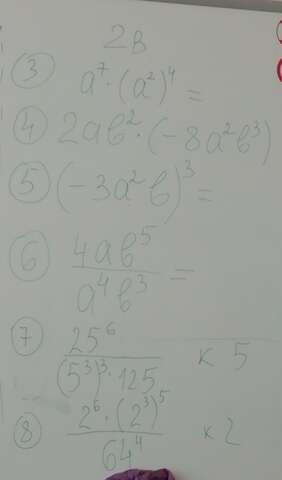 2в
③ a⁷·(a²)⁴ =
④ 2aв²·(-8a²в³)
⑤ (-3a²в)³ =
⑥ 4aв⁵/a⁴в³ =
⑦ 25⁶/(5³)³·125 к 5
⑧ 2⁶·(2³)⁵/64⁴ к 2